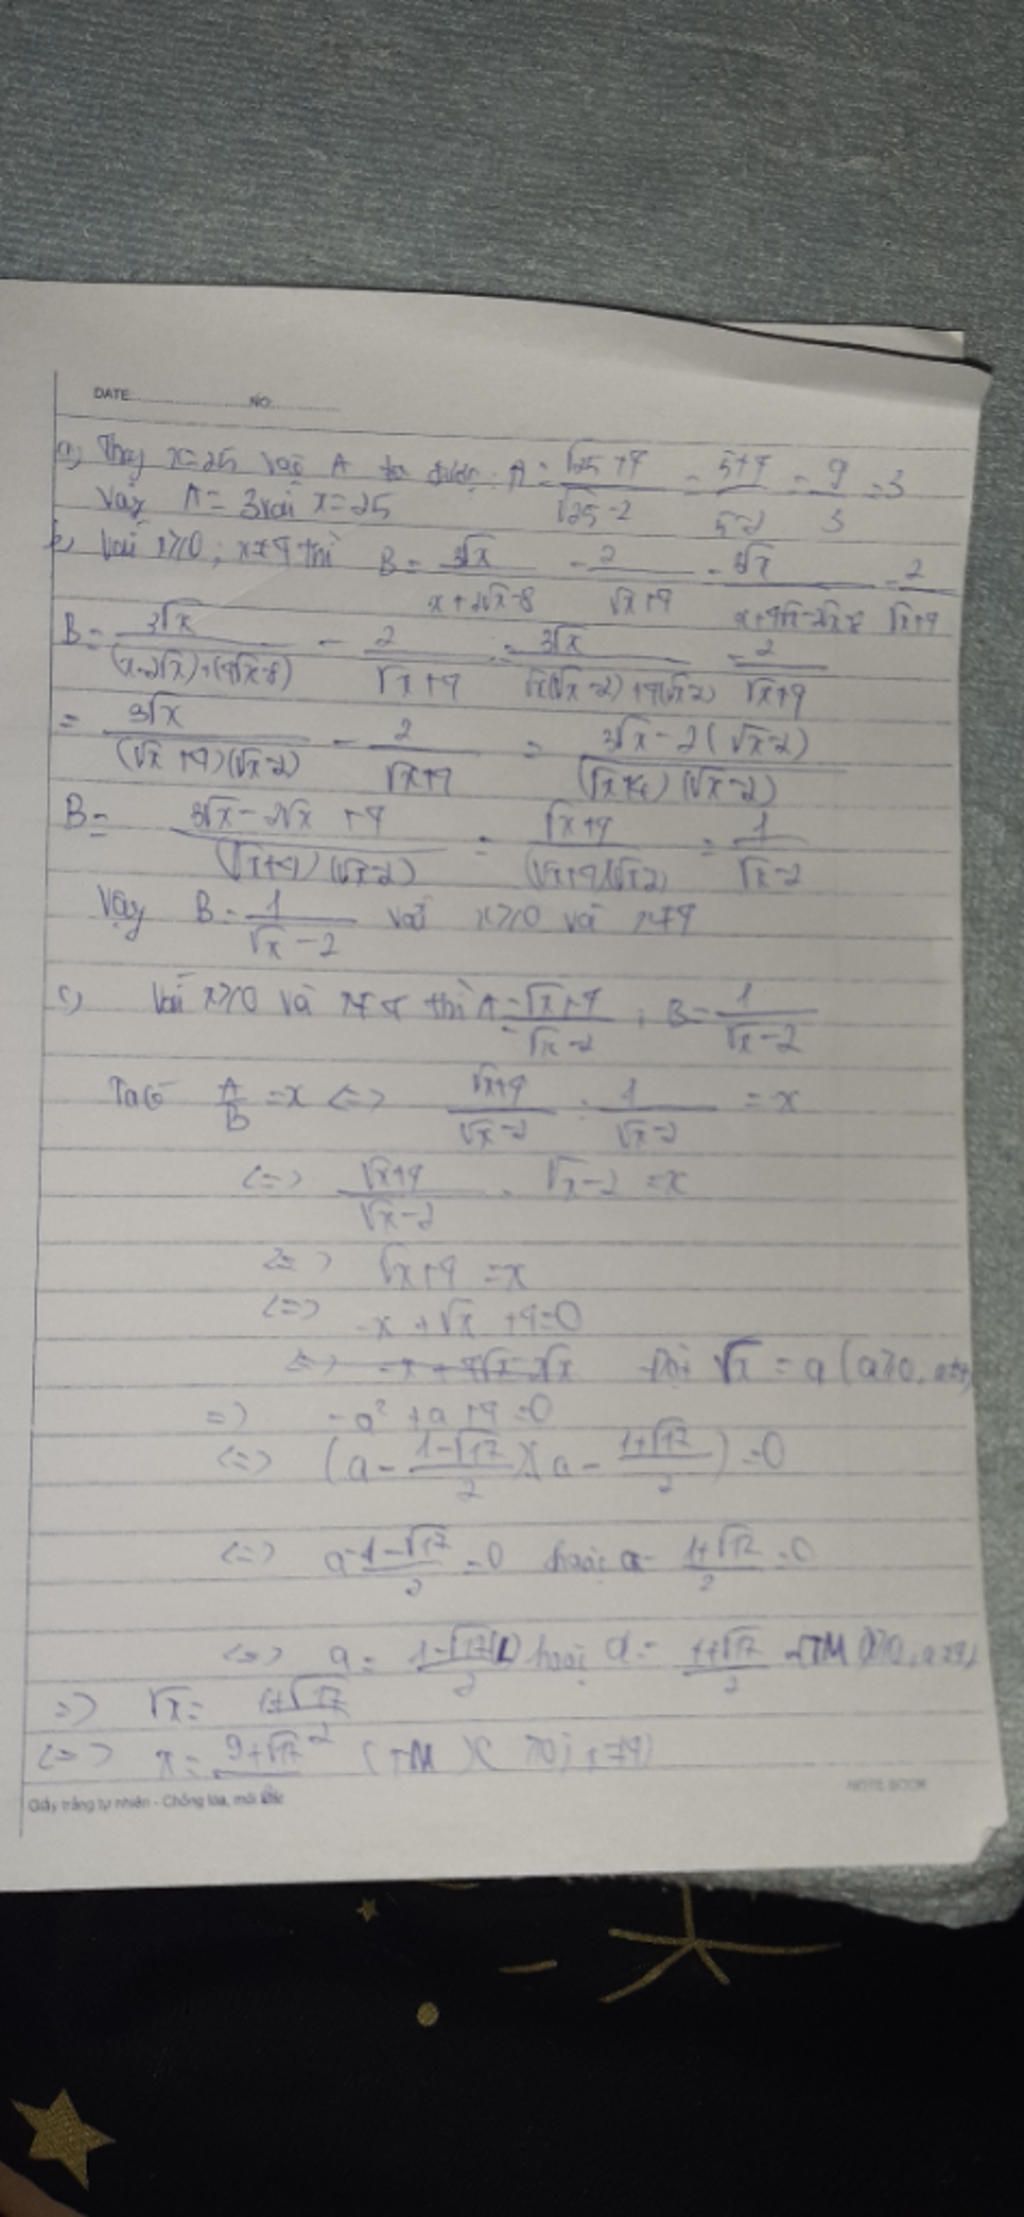 DATE............ NO............
a) Thay x=25 vào A ta được: A = √25+4/√25-2 = 5+4/5-2 = 9/3 = 3
Vậy A = 3 với x=25
b) Với x≥0; x≠4 thì B = 3√x/x+2√x-8 - 2/√x+4 = 3√x/x+4√x-2√x-8 - 2/√x+4
B = 3√x/(x-2√x)+(4√x-8) - 2/√x+4 = 3√x/√x(√x-2)+4(√x-2) - 2/√x+4
= 3√x/(√x+4)(√x-2) - 2/√x+4 = 3√x-2(√x-2)/(√x+4)(√x-2)
B = 3√x-2√x+4/(√x+4)(√x-2) = √x+4/(√x+4)(√x-2) = 1/√x-2
Vậy B = 1/√x-2 với x≥0 và x≠4
c) Với x≥0 và x≠4 thì A = √x+4/√x-2; B = 1/√x-2
Ta có A/B = x <=> √x+4/√x-2 : 1/√x-2 = x
<=> √x+4/√x-2 . √x-2 = x
<=> √x+4 = x
<=> -x+√x+4=0
Đặt √x = a (a≥0,
=> -a²+a+4=0
<=> (a - 1-√17/2)(a - 1+√17/2) = 0
<=> a - 1-√17/2 = 0 hoặc a - 1+√17/2 = 0
<=> a = 1-√17/2 (L) hoặc a = 1+√17/2 TM
=> √x = 1+√17/2
<=> x = 9+√17/2 (TM)
Giấy trắng tự nhiên - Chống lóa, mỏi mắt
NOTE BOOK